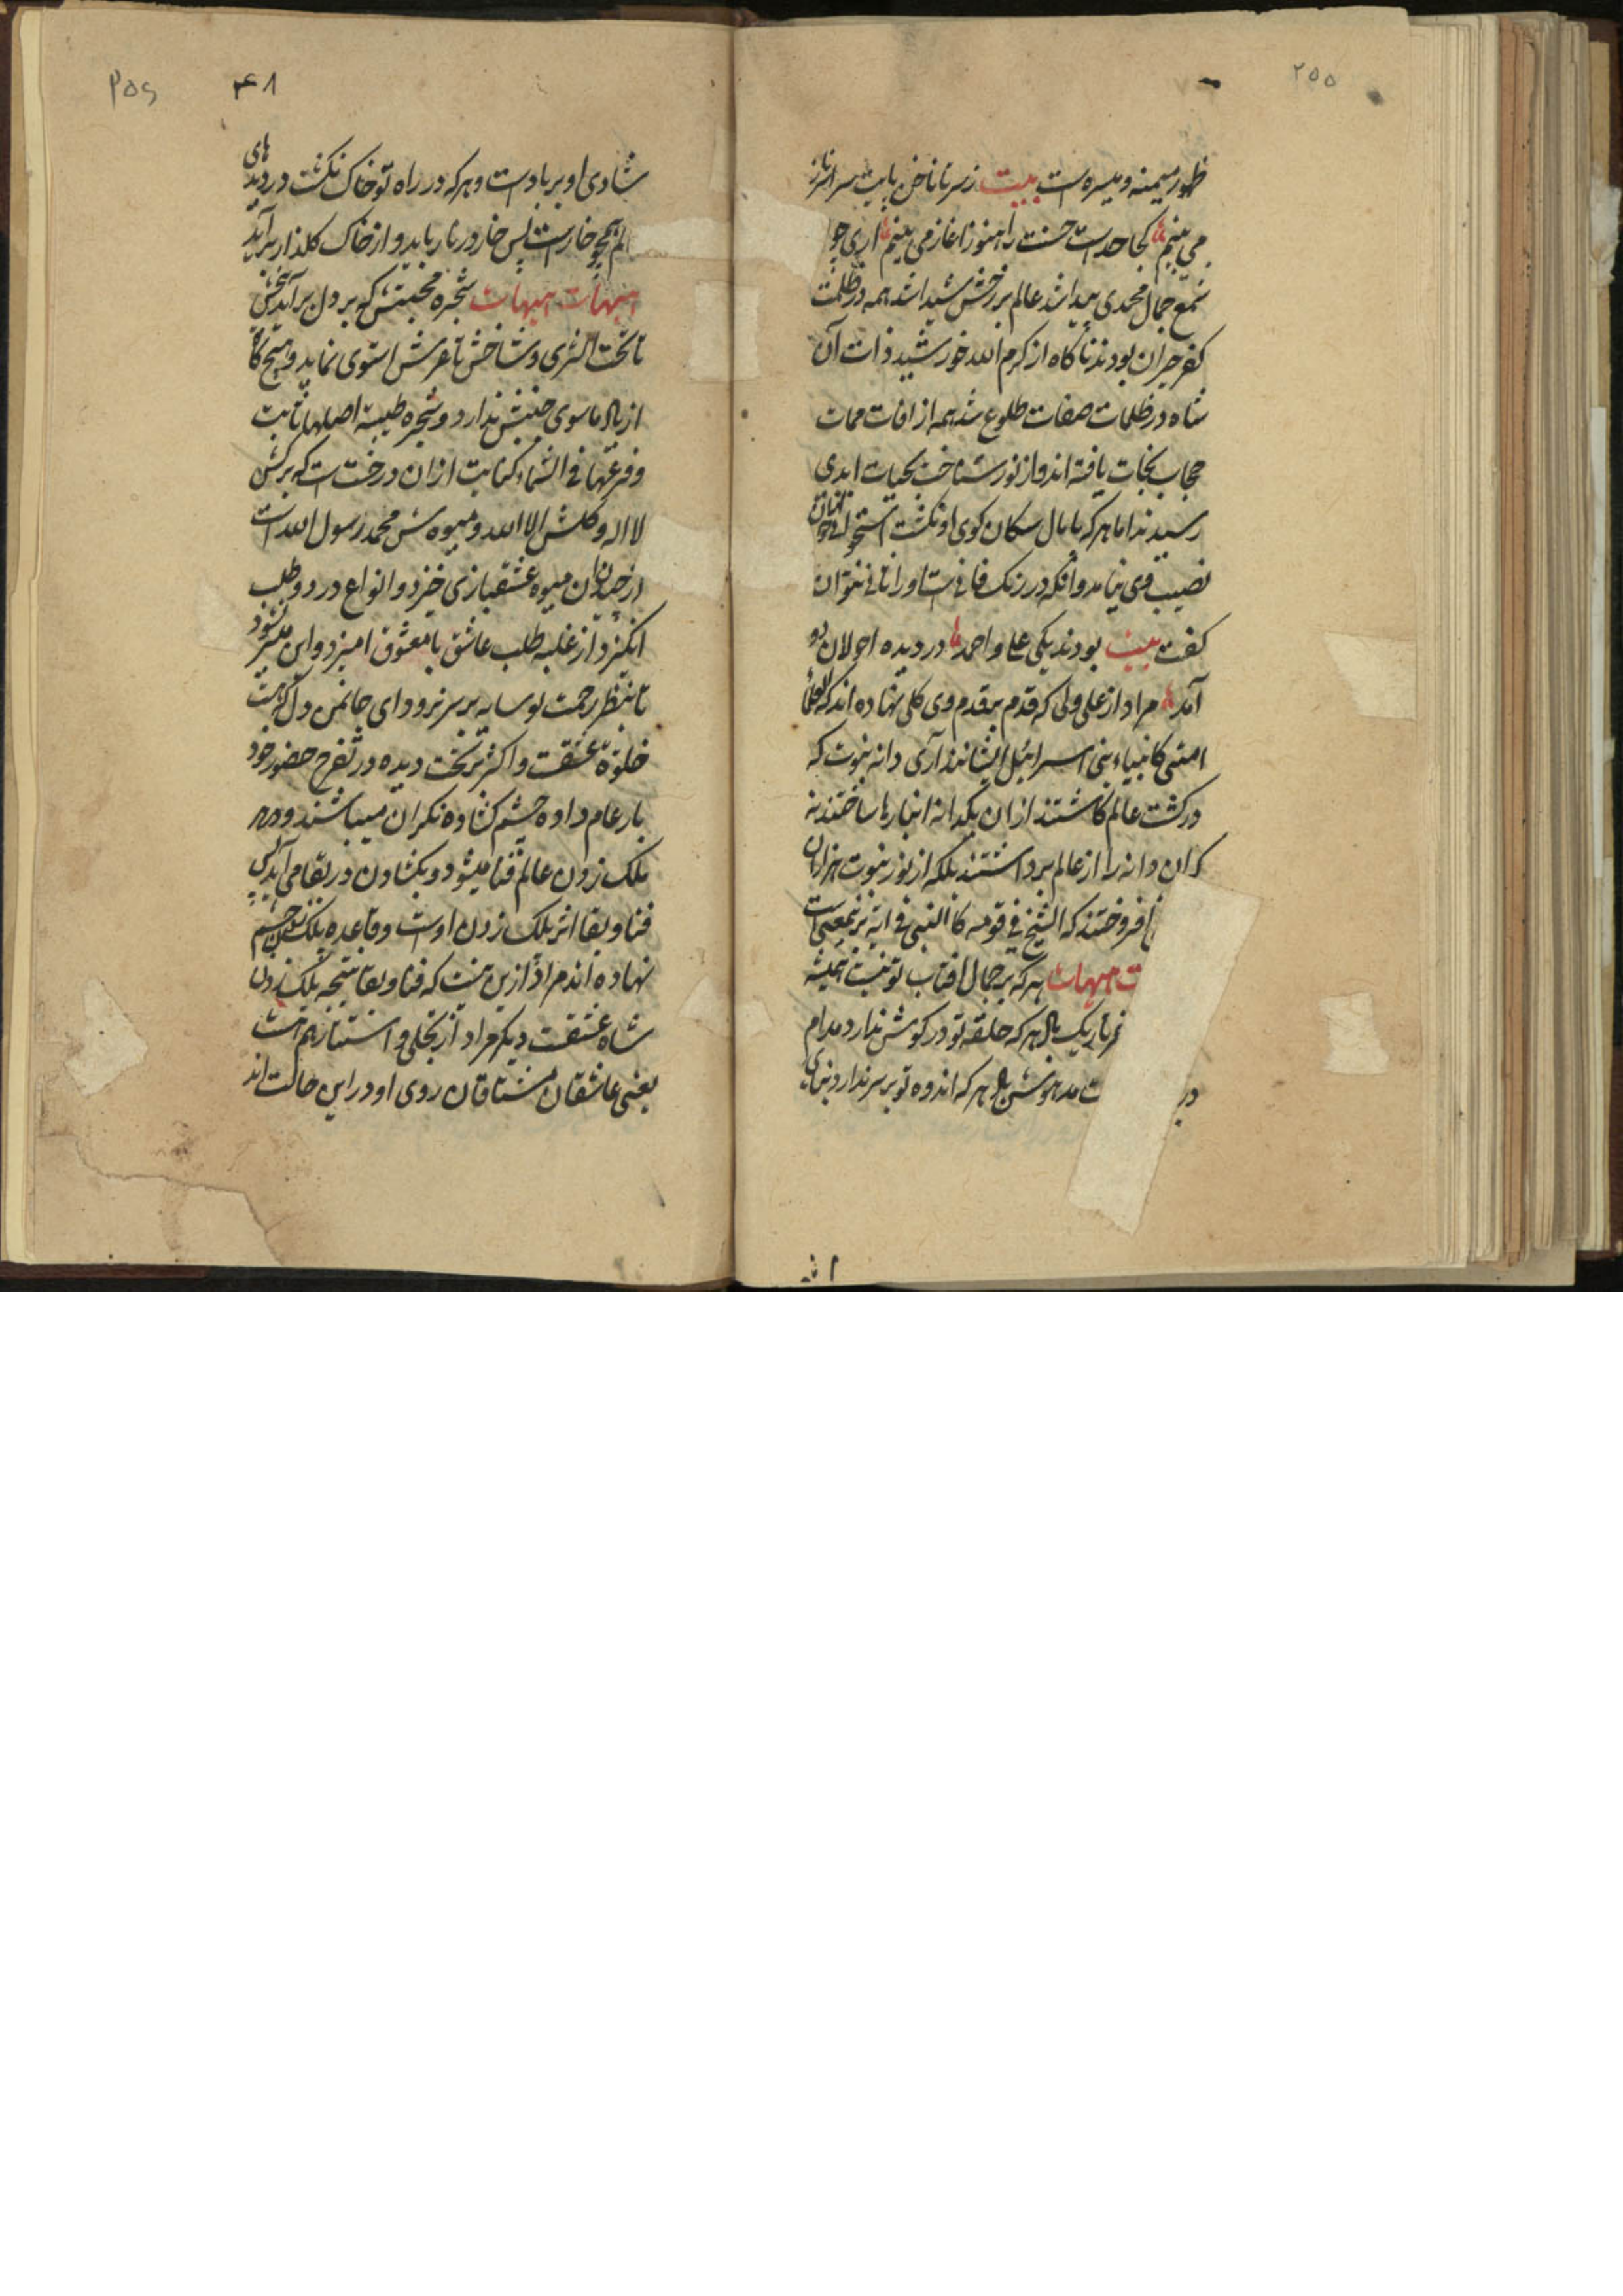 ۲۵۵
ظهور میمنه و میسره است بیت ز سر تا ناخن پایت سراسر ناز
می بینم کجا حد است حسنت را هنوز آغاز می بینم اری چو
شمع جمال محمدی پیدا شد عالم بر رخش شیدا شد همه در ظلمت
کفر حیران بودند ناکاه از کرم الله خورشید ذات آن
شاه در ظلمات صفات طلوع شد همه از افات ممات
حجاب نجات یافته اند و از نور شناخت بحیات ابدی
رسیدند اما هر که پامال سکان کوی او نکشت استخوان
نصیب وی نیامد وانکه در رنک فانی است او را فانی نتوان
کفت بیت بودند یکی علی و احمد در دیده احولان دو
آمد مراد از علی ولی که قدم بر قدم وی کلی نهاده اند که العلماء
امتی کانبیاء بنی اسرائیل ایشانند آری دانه نبوت که
در کشت عالم کاشتند از ان یکدانه انبارها ساختند نه
که ان دانه را از عالم برداشتند بلکه از نور نبوت هزاران
افروختند که الشیخ فی قومه کا النبی فی امته بر نیمعنی است
ت هیهات هر که بر جمال افتاب تو نیست همیشه
تاریک بال هر که حلقه تو در کوش ندارد مدام
در ت مدهوش بال هر که اندوه تو بر سر ندارد بنهای
۲۵۶ ۴۸
شادی او بر باد است و هر که در راه تو خاک نکشت در دیدهای
الم همچو خار است پس خار در نار باید و از خاک کلذار برآید
هیهات هیهات شجره محبتش که بر دل برآید بیخش
تا تحت الثری و شاخش تا عرش استوی نماید و هیچ کاه
از بال ماسوی جنبش ندارد و شجره طیبة اصلها ثابت
و فرعها فی السماء کنایت از ان درخت است که برکش
لا اله و کلش الا الله و میوه ش محمد رسول الله است
از خوردن ان میوه عشقبازی خیزد و انواع درد و طلب
انکیزد از غلبه طلب عاشق با معشوق امیزد و این میسر نشود
تا بنظر رحمت تو سایه بر سر نرود ای جانمن دل که هست
خلوة عشقت و اکثر بر تخت دیده در تفرج حضور خود
بار عام داده چشم کشاده نکران میباشند و در
پلک زدن عالم فنا میشود و بکشادن در بقا می آید پس
فنا و بقا اثر پلک زدن اوست و قاعده پلک زدن چشم
نهاده اند مراد از این هست که فنا و بقا نتیجه پلک زدن
شاه عشقت دیکر مراد از تجلی و استتار هم هست
یعنی عاشقان مشتاقان روی او در این حالت اند